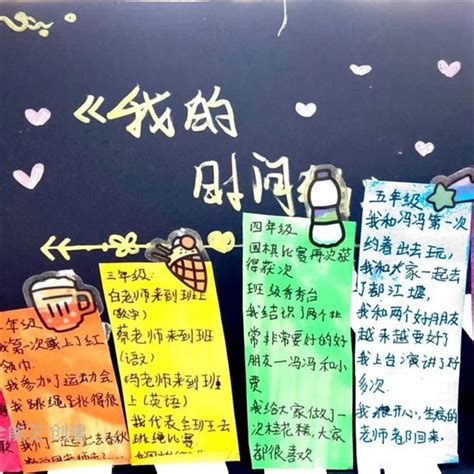 《我的
时间
年级
第一次戴上了红
领巾
我参加了运动会
我跳绳跳得很
三年级:
白老师来到班上
(数学)
蔡老师来到班
(语文)
妈老师来到班
上(英语)
我代表全班去
跳绳比赛
四年级
围棋比赛再次获
得获次
班级秀秀台
我结识了两个非
常非常要好的好
朋友—冯冯和小
贾
我给大家做了一
次桂花糕,大家
都很喜欢
五年级
我和冯冯第一次
约着出去玩,
我和大家一起去
了都江堰,
我和两个好朋友
越来越要好了
我上台演讲了好
多次.
我很开心,生病的
老师都回来.